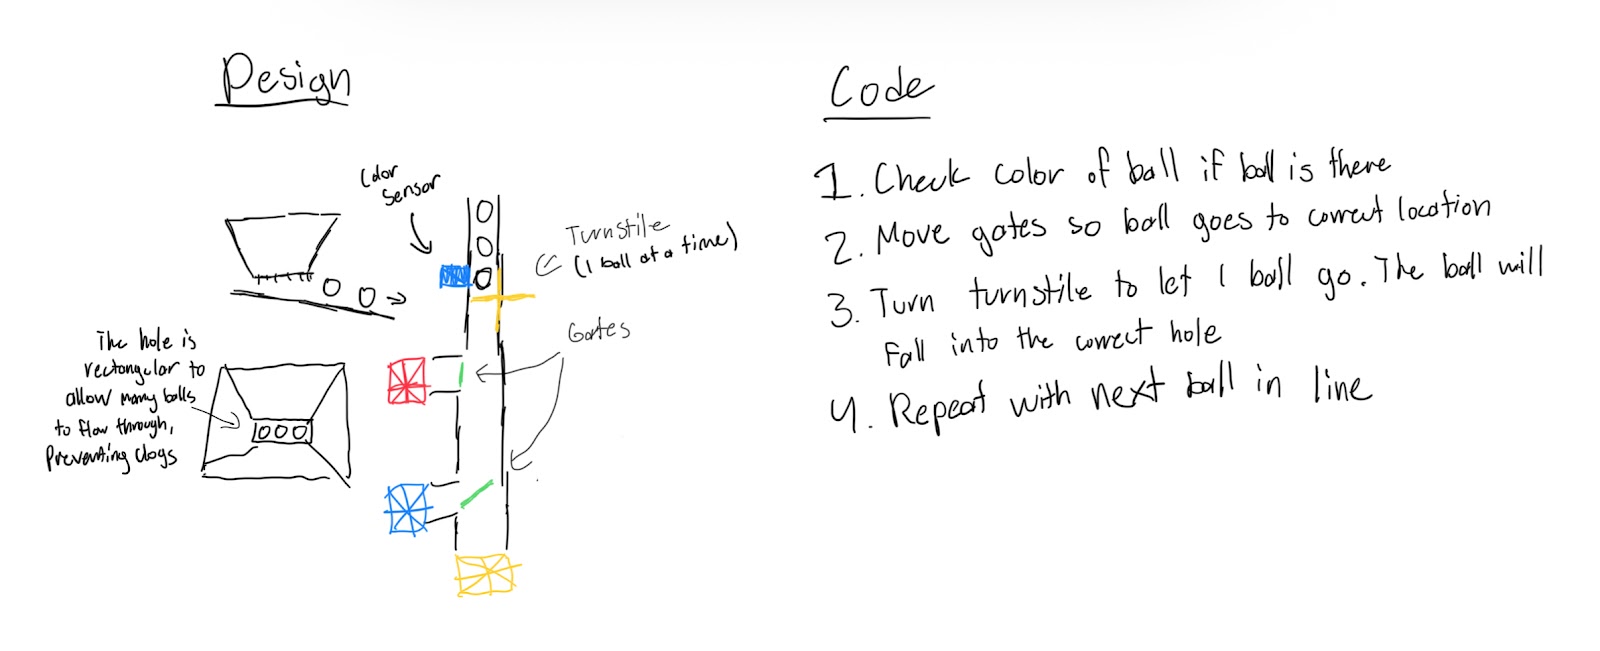 Design
Color
Sensor
Turnstile
(1 ball at a time)
Gates
The hole is
rectangular to
allow many balls
to flow through,
preventing clogs
Code
1. Check color of ball if ball is there
2. Move gates so ball goes to correct location
3. Turn turnstile to let 1 ball go. The ball will
fall into the correct hole
4. Repeat with next ball in line